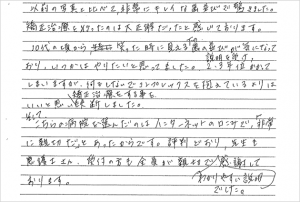 以前の写真と比べて、非常にキレイな歯並びで驚きました。
矯正治療を行ったのは大正解だったと感じております。
10代の頃から、笑った時に見える歯の歯並びが気になって
おり、いつかはやりたいと思ってました。2・3年位かかって
しまいますが、何もしないでコンプレックスを抱えているよりは
矯正治療をする事を
いいと思い決断しました。
こちらの病院を選んだのはインターネットの口コミで、「非常
に親切だ」とあったからです。評判どおり、先生も
受付の方も全員が親切で感謝して
おります。
わかりやすい説明
でした。